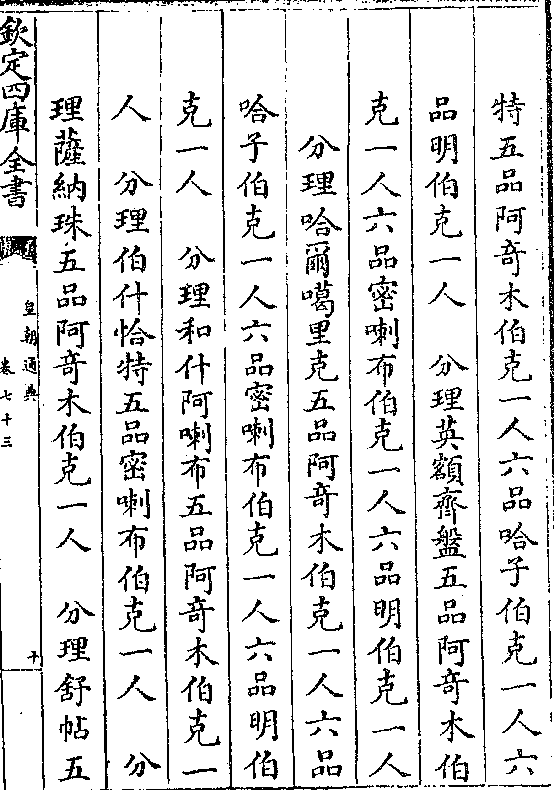 特五品阿竒木伯克一人六品哈子伯克一人六
品明伯克一人　分理英額齊盤五品阿竒木伯
克一人六品密喇布伯克一人六品明伯克一人
分理哈爾噶里克五品阿竒木伯克一人六品
哈子伯克一人六品密喇布伯克一人六品明伯
克一人　分理和什阿喇布五品阿竒木伯克一
人　分理伯什恰特五品密喇布伯克一人　分
理薩納珠五品阿竒木伯克一人　分理舒帖五
欽定四庫全書
皇朝通典
卷七十三
十